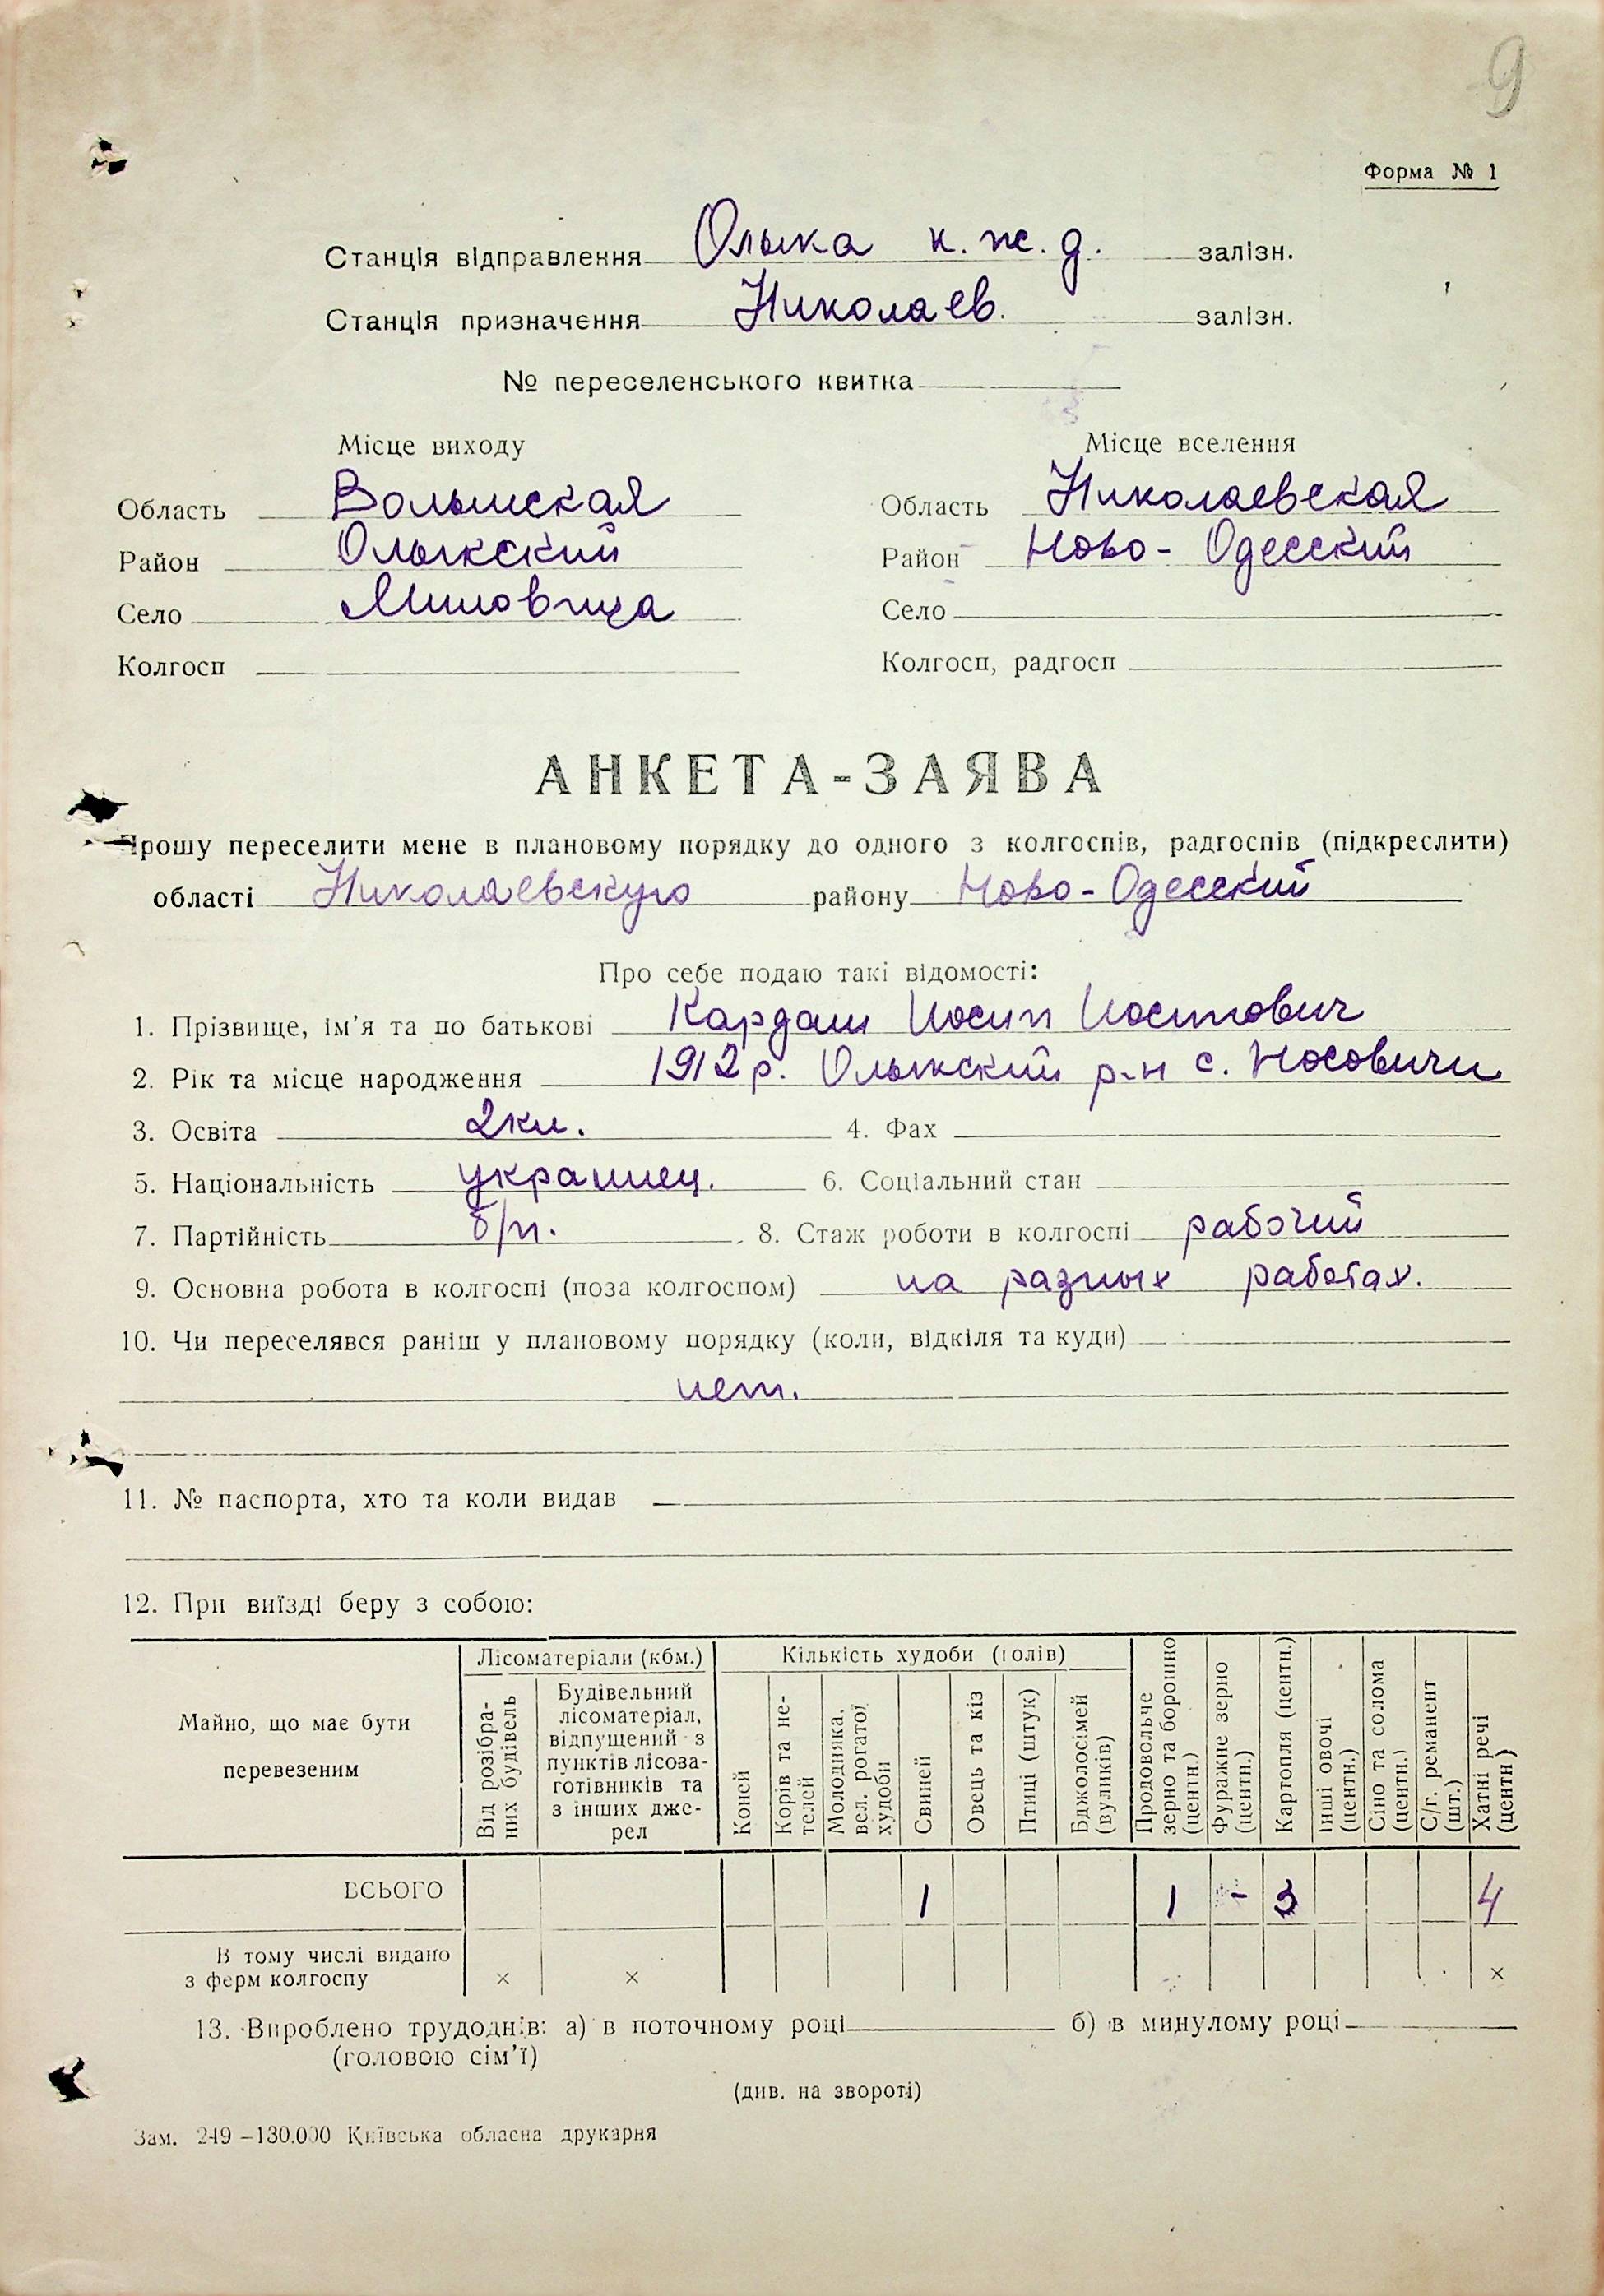 9
Форма № 1
Станція відправлення Олыка к. ж. д. залізн.
Станція призначення Николаев. залізн.
№ переселенського квитка
Місце виходу
Місце вселення
Область Волынская
Область Николаевская
Район Олыкский
Район Ново-Одесский
Село
Село
Колгосп
Колгосп, радгосп
АНКЕТА-ЗАЯВА
Прошу переселити мене в плановому порядку до одного з колгоспів, радгоспів (підкреслити)
області Николаевскую району Ново-Одесский
Про себе подаю такі відомості:
1. Прізвище, ім'я та по батькові Кардаш Иосип Иосипович
2. Рік та місце народження 1912 р. Олыкский р-н с. Носовичи
3. Освіта 2кл. 4. Фах
5. Національність украинец. 6. Соціальний стан
7. Партійність б/п. 8. Стаж роботи в колгоспі рабочий
9. Основна робота в колгоспі (поза колгоспом) на разных работах.
10. Чи переселявся раніш у плановому порядку (коли, відкіля та куди)
нет.
11. № паспорта, хто та коли видав
12. При виїзді беру з собою:
Майно, що має бути
перевезеним
Лісоматеріали (кбм.)
Від розібра-
них будівель
Будівельний
лісоматеріал,
відпущений з
пунктів лісоза-
готівників та
з інших дже-
рел
Кількість худоби (голів)
Коней
Корів та не-
телей
Молодняка,
вел. рогатої
худоби
Свиней
Овець та кіз
Птиці (штук)
Бджолосімей
(вуликів)
Продовольче
зерно та борошно
(центн.)
Фуражне зерно
(центн.)
Картопля (центн.)
Інші овочі
(центн.)
Сіно та солома
(центн.)
С/г. реманент
(шт.)
Хатні речі
(центн)
ВСЬОГО 1 1 - 3 4
В тому числі видано
з ферм колгоспу × × ×
13. Вироблено трудоднів: а) в поточному році б) в минулому році
(головою сім'ї)
(див. на звороті)
Зам. 249 — 130.000 Київська обласна друкарня